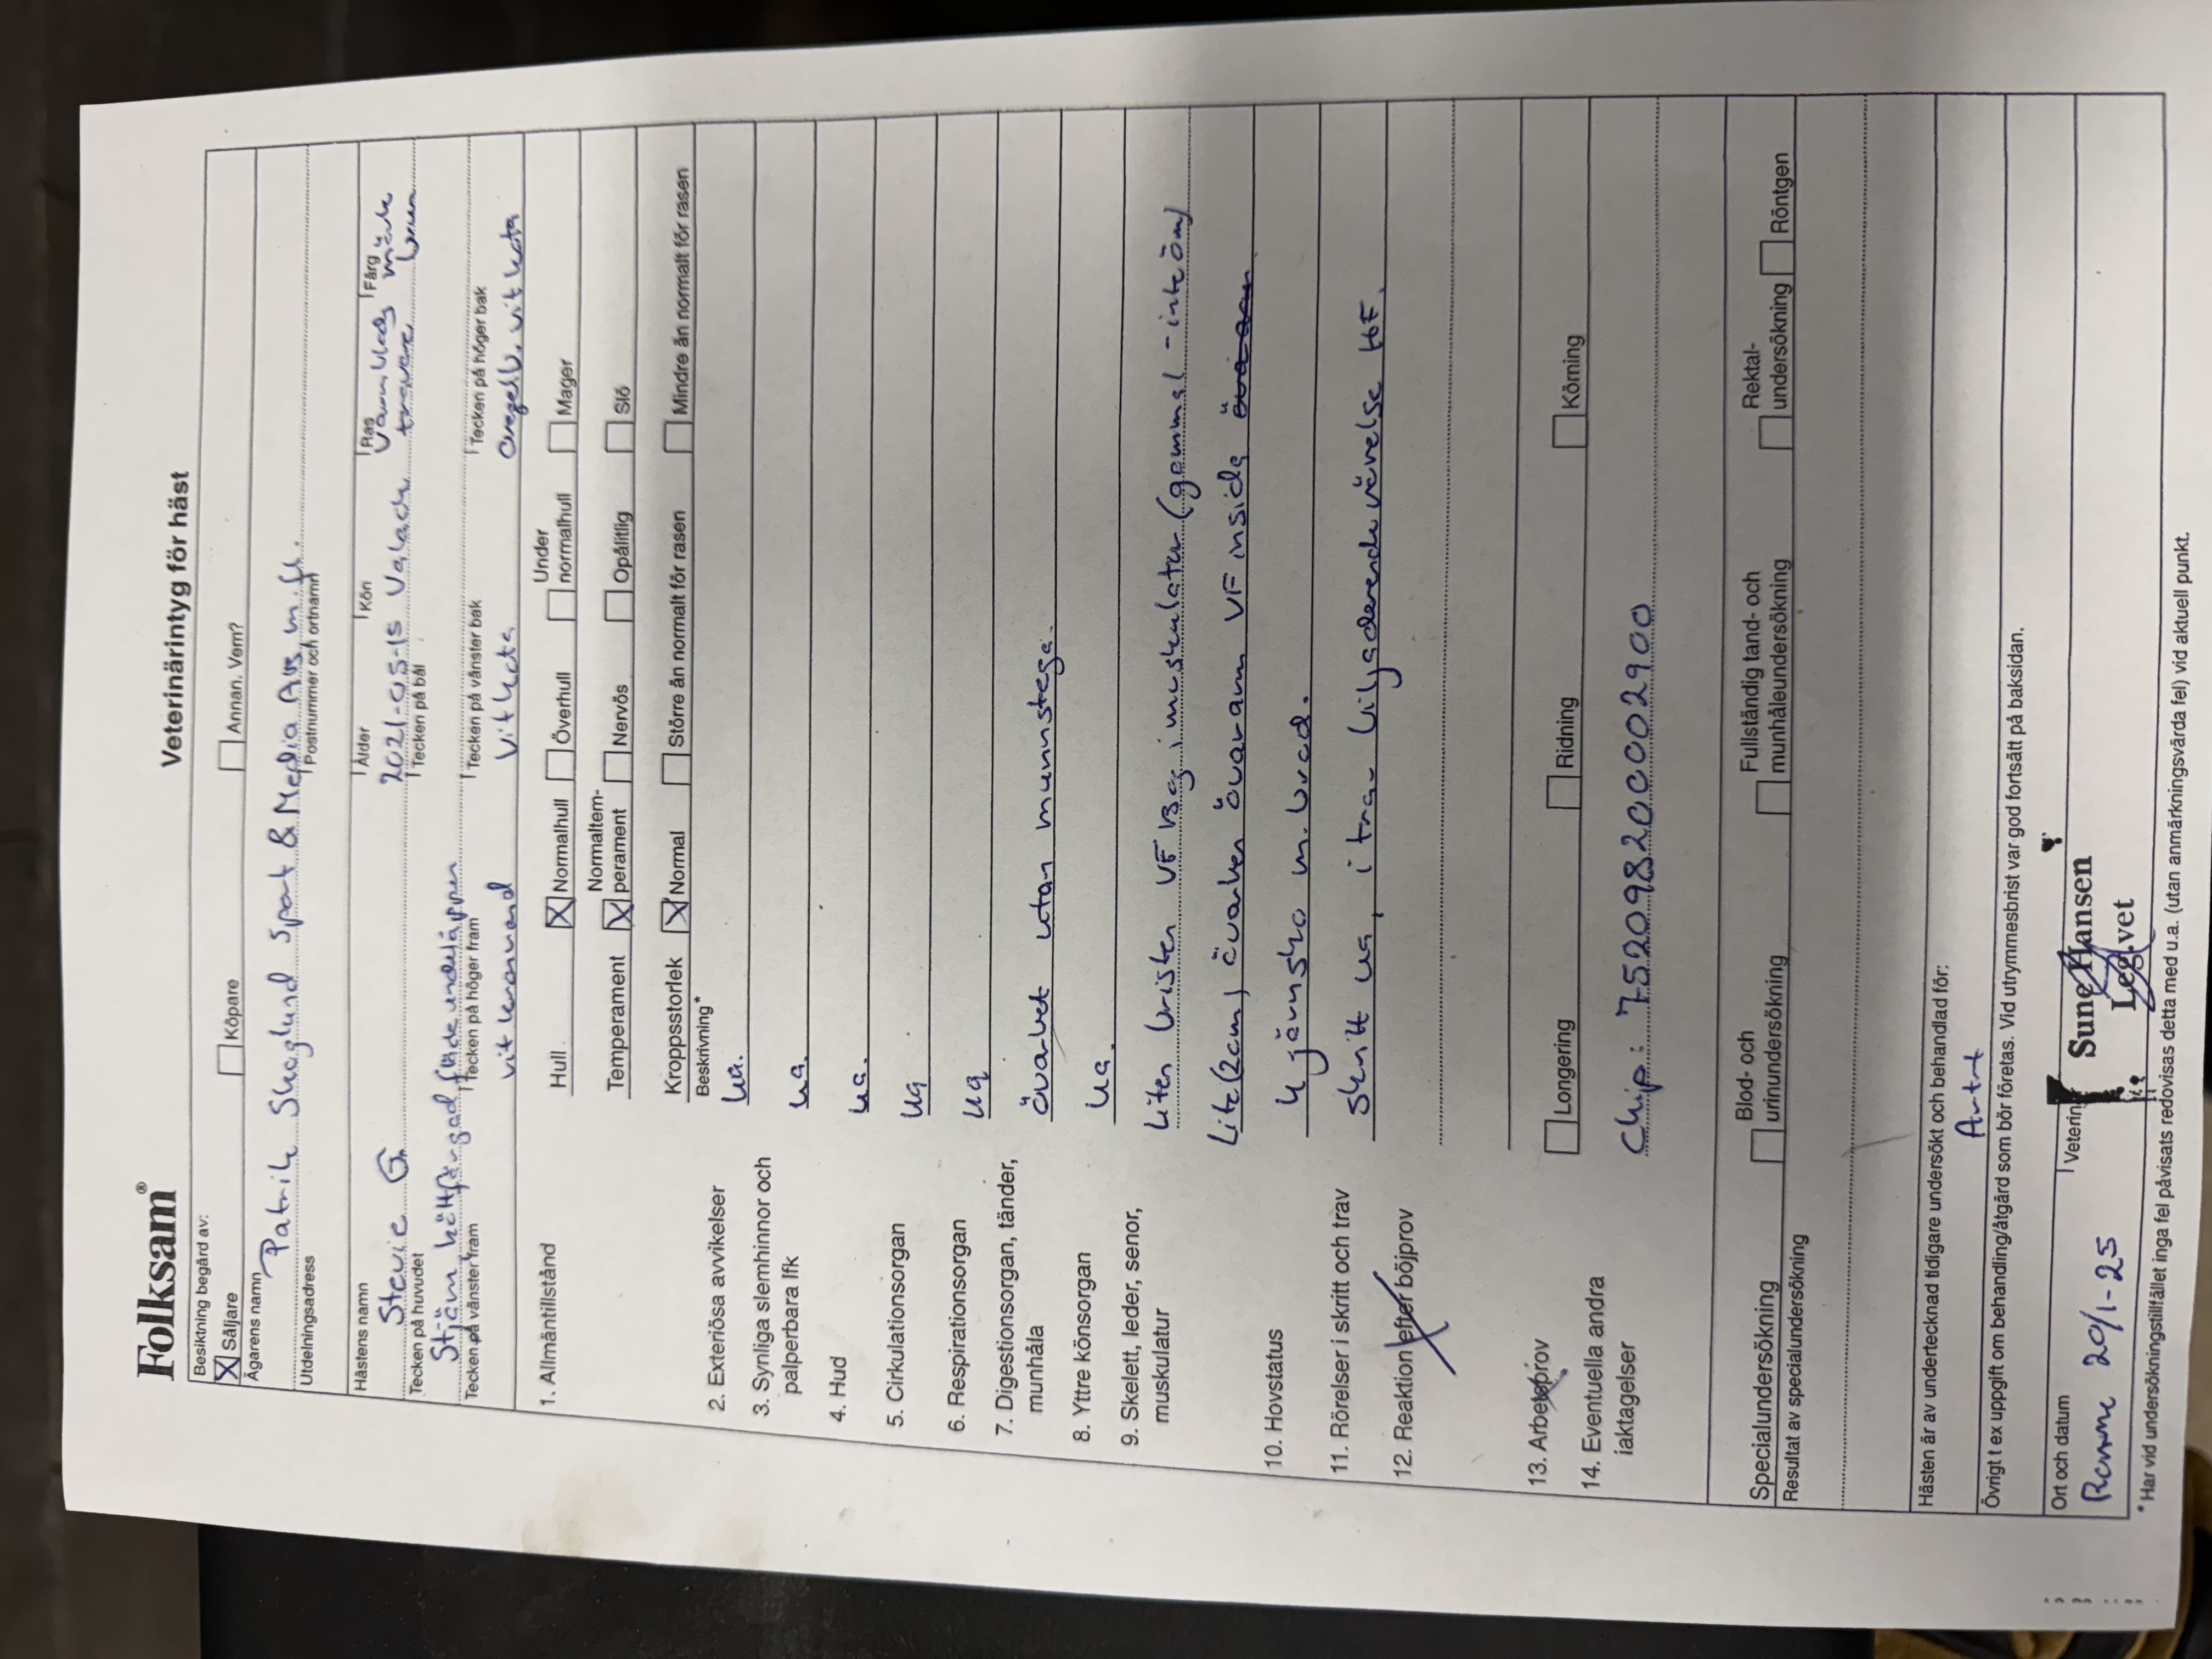 Folksam®
Veterinärintyg för häst
Besiktning begärd av:
X Säljare Köpare Annan. Vem?
Ägarens namn
Patrik Skoglund Sport & Media AB m.fl.
Utdelningsadress Postnummer och ortnamn
Hästens namn Ålder Kön Ras Färg
Stevie G 2021-05-15 Valack Varmblods mörk
travare brun
Tecken på huvudet Tecken på bål
Stjärn köttfärgad underläppen
Tecken på vänster fram Tecken på höger fram Tecken på vänster bak Tecken på höger bak
vit kronrand Vit kota oregelb. vit kota
1. Allmäntillstånd Hull X Normalhull Överhull Under normalhull Mager
Temperament X Normaltemperament Nervös Opålitlig Slö
Kroppsstorlek X Normal Större än normalt för rasen Mindre än normalt för rasen
Beskrivning*
2. Exteriösa avvikelser ua.
3. Synliga slemhinnor och ua.
palperbara lfk
4. Hud ua.
5. Cirkulationsorgan ua
6. Respirationsorgan ua
7. Digestionsorgan, tänder, övarbet utan munnstega.
munhåla
8. Yttre könsorgan ua.
9. Skelett, leder, senor, Liten bristen VF Bog i muskulatur (gammal - inte öm)
muskulatur
Lite (2cm) övarben övararm VF insida
10. Hovstatus 4 järnsko m. brod.
11. Rörelser i skritt och trav skritt ua, i trav biljadenrenderörelse HF.
12. Reaktion efter böjprov
13. Arbetsprov Longering Ridning Körning
14. Eventuella andra Chip: 752098200002900
iaktagelser
Specialundersökning Blod- och urinundersökning Fullständig tand- och munhåleundersökning Rektal-undersökning Röntgen
Resultat av specialundersökning
Hästen är av undertecknad tidigare undersökt och behandlad för:
Artrt
Övrigt t ex uppgift om behandling/åtgärd som bör företas. Vid utrymmesbrist var god fortsätt på baksidan.
Ort och datum Veterin
20/1-25 Sune Hansen
Leg.vet
* Har vid undersökningstillfället inga fel påvisats redovisas detta med u.a. (utan anmärkningsvärda fel) vid aktuell punkt.